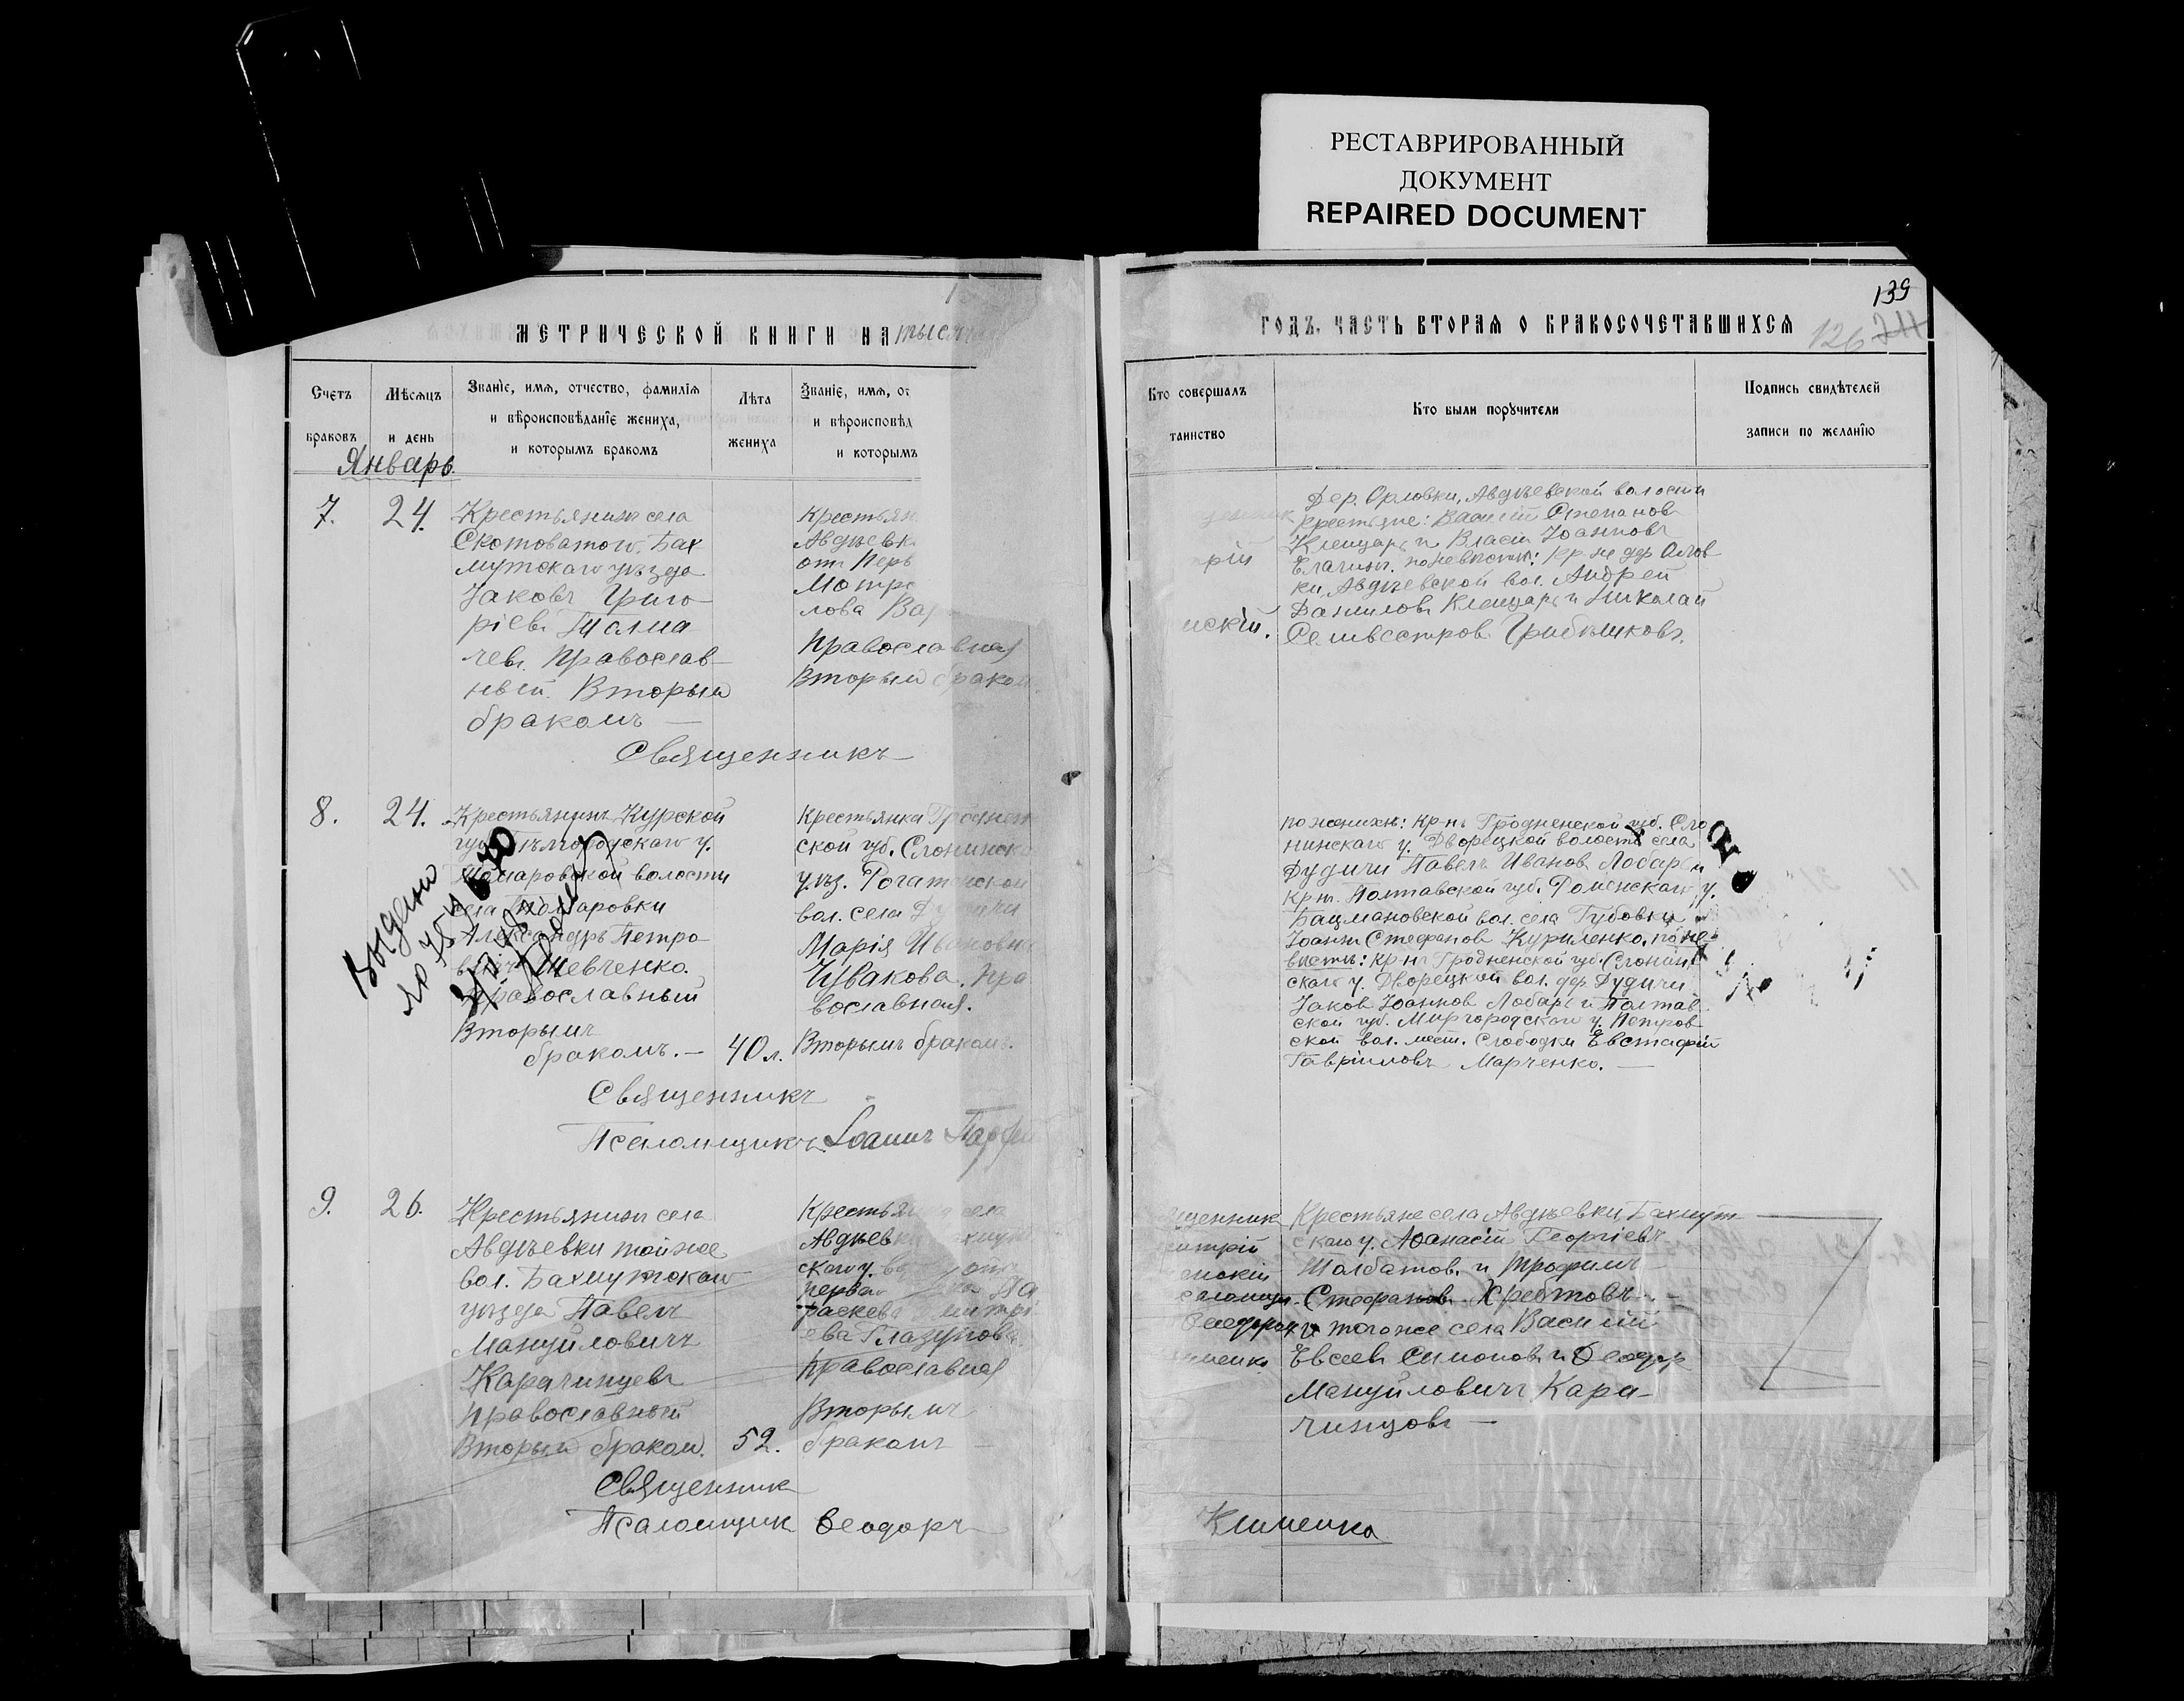 РЕСТАВРИРОВАННЫЙ
ДОКУМЕНТ
REPAIRED DOCUMENT
МЕТРИЧЕСКОЙ КНИГИ НА тысяч
Счетъ
браковъ
Мѣсяцъ
и день
Званіе, имя, отчество, фамилія
и вѣроисповѣданіе жениха,
и которымъ бракомъ
Лѣта
жениха
Званіе, имя, от
и вѣроисповѣд
и которымъ
Январь
7.
24.
Крестьянинъ села
Скотоватого, Бах
мутскаго уѣзда
Іаковъ Григо
ріевъ Толма
чевъ. Православ
ный. Вторым
бракомъ
Крестьян
Авдѣевк
от Перв
Мотро
лова Ва
Православная
Вторым браком.
Священникъ
8.
24.
Крестьянинъ Курской
губ. Бѣлгородскаго у.
Томаровской волости
села Томаровки
Александръ Петро
вичъ Шевченко.
Православный
Вторымъ
бракомъ.
40 л.
Крестьянка Гроднен
ской губ. Слонимско
уѣз. Рогатенской
вол. села Дудичи
Марія Ивановна
Чувакова. Пра
вославная.
Вторымъ бракомъ.
Выдано
Священникъ
Псаломщикъ Іоаннъ
9.
26.
Крестьянинъ села
Авдѣевки той же
вол. Бахмутскаго
уѣзда Павелъ
Мануйловичъ
Карачинцевъ
православный
Вторым браком.
52.
Крестьян села
Авдѣевк
скаго у.
перва
раскева
ева Глазунова
православная
Вторымъ
бракомъ
Священник
Псаломщик Ѳеодоръ
139
126
ГОДЪ. ЧАСТЬ ВТОРАЯ О БРАКОСОЧЕТАВШИХСЯ
Кто совершалъ
таинство
Кто были поручители
Подпись свидѣтелей
записи по желанію
рій
нскій.
Дер. Орловки, Авдѣевской волости
крестьяне: Василій Степанов
Клещаръ и Власій Іоанновъ
по невѣстѣ: кр-не дер Орлов
ки, Авдѣевской вол. Андрей
Данилов Клещаръ и Николай
Селивестров Грибѣшковъ.
по женихѣ: кр-нъ Гродненской губ. Сло
нимскаго у. Дворецкой волости села
Дудичи Павелъ Иванов Лобаръ и
кр-нъ Полтавской губ. Роменскаго у.
Бацмановской вол. села Губовки
Іоаннъ Стефанов Куриленко, по не
вѣстѣ: кр-нъ Гродненской губ. Слоним
скаго у. Дворецкой вол. дер Дудичи
Іаков Іоаннов Лобаръ и Полтав
ской губ. Миргородскаго у. Петров
ской вол. мест. Слободки Евстафій
Гавріиловъ Марченко.
щенник
митрій
нскій
саломщ.
Ѳеодор
Крестьяне села Авдѣевки, Бахмут
скаго у. Аѳанасій Георгіевъ
Толбатов и Трофимъ
Стефанов
и того же села Василій
Евсеев Симонов и Ѳеодор
Мануйловичъ Кара
чинцовъ
Клименко